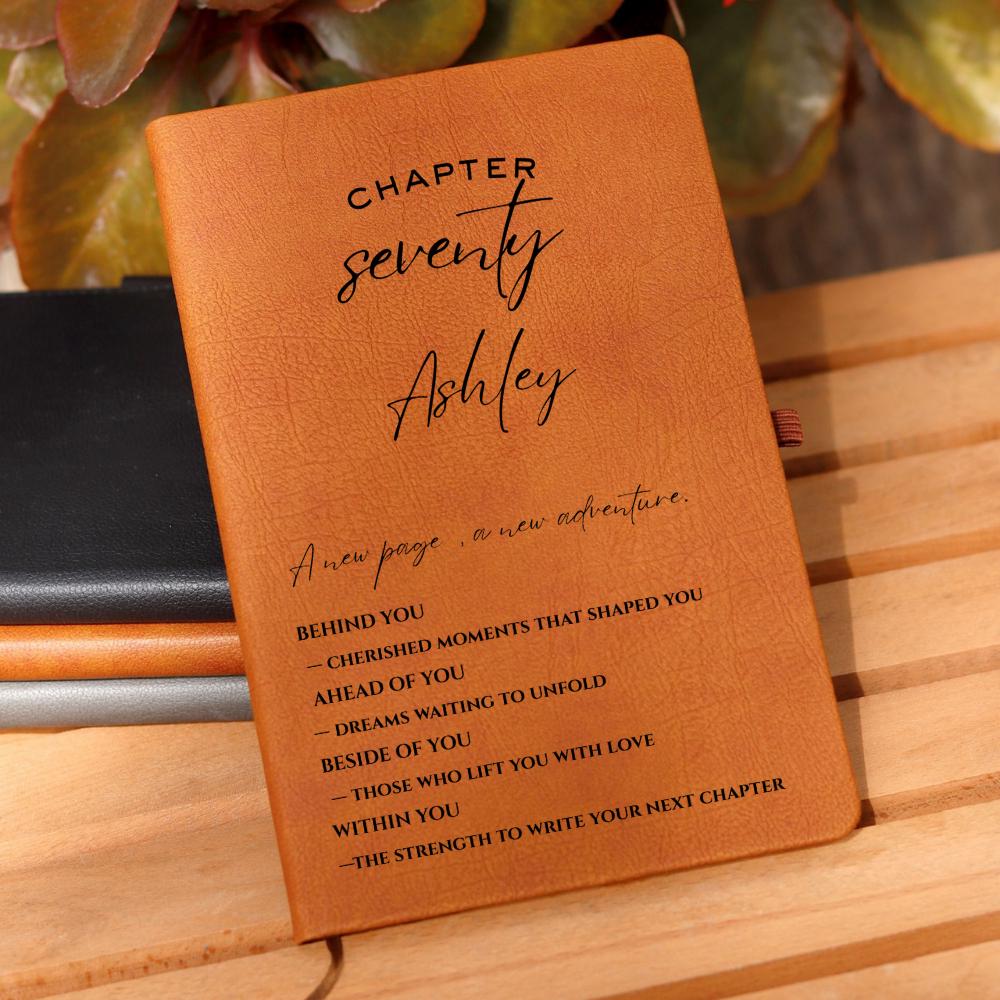 CHAPTER
seventy
Ashley
A new page , a new adventure.
BEHIND YOU
— CHERISHED MOMENTS THAT SHAPED YOU
AHEAD OF YOU
— DREAMS WAITING TO UNFOLD
BESIDE OF YOU
— THOSE WHO LIFT YOU WITH LOVE
WITHIN YOU
—THE STRENGTH TO WRITE YOUR NEXT CHAPTER